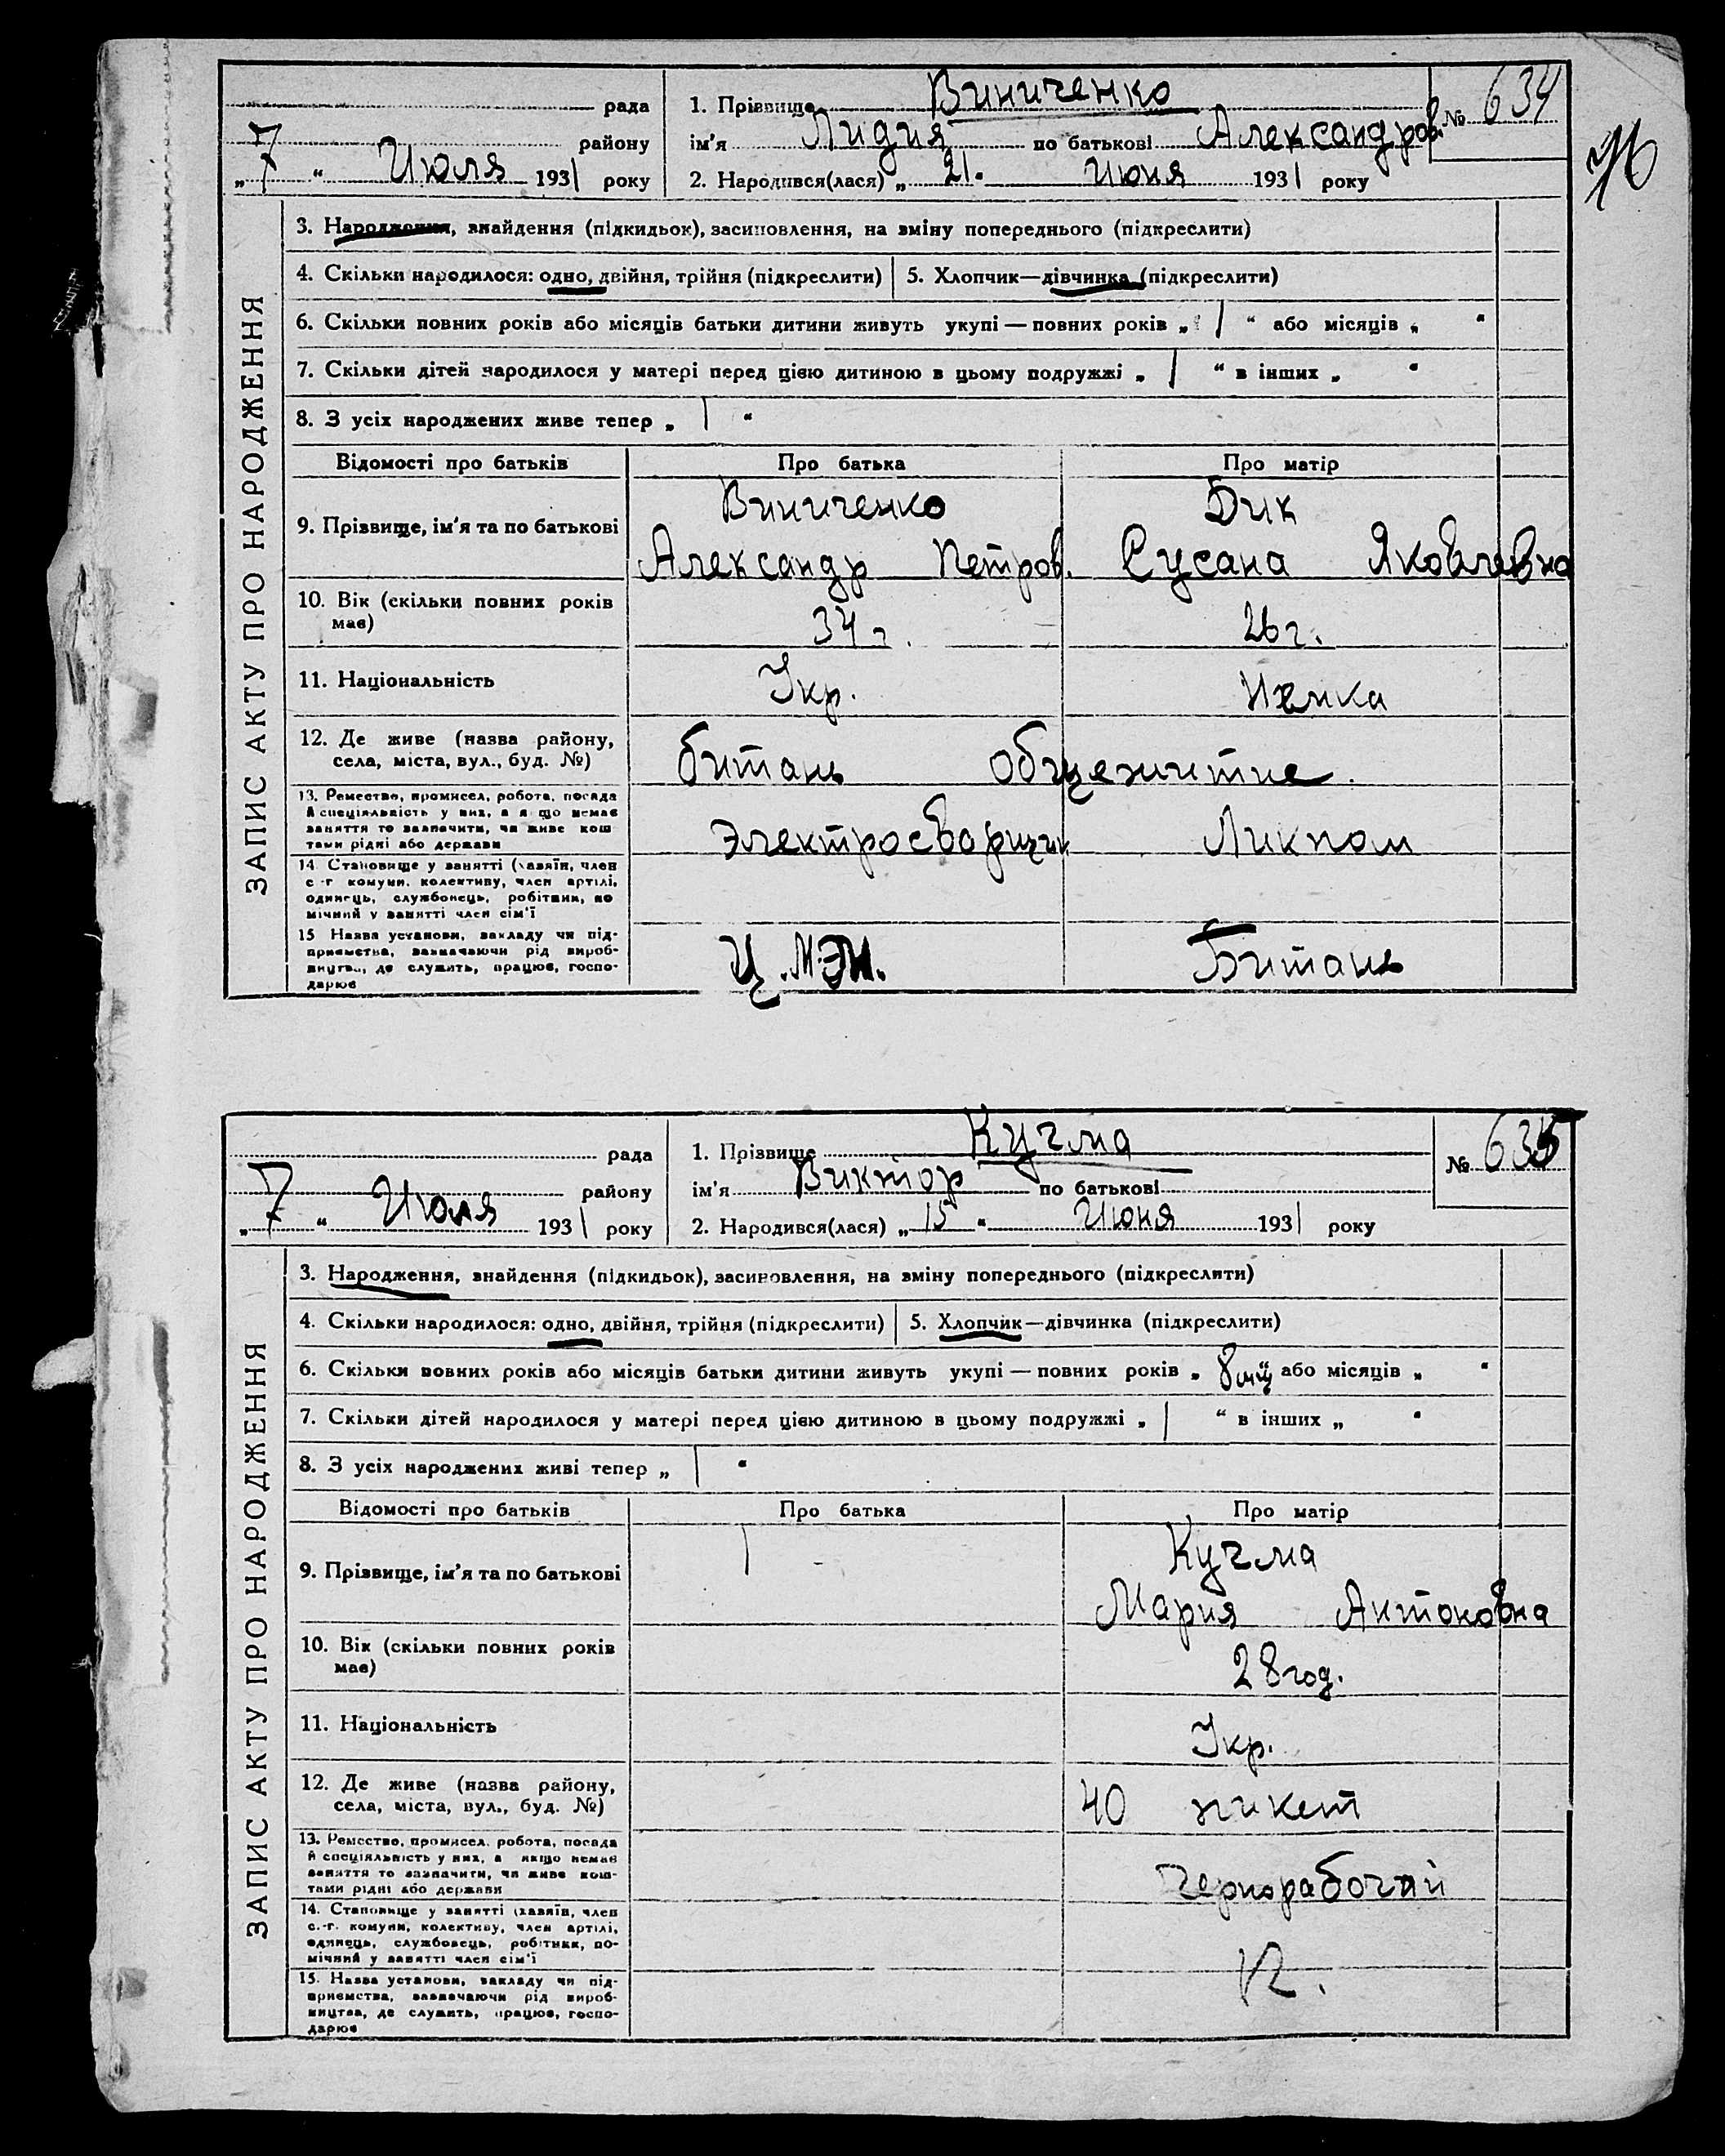 рада
1. Прізвище Виниченко
№ 634
району
ім'я Лидия по батькові Александров.
„7“ Июля 1931 року
2. Народився(лася) „21.“ июня 1931 року
ЗАПИС АКТУ ПРО НАРОДЖЕННЯ
3. Народження, знайдення (підкидьок), засиновлення, на зміну попереднього (підкреслити)
4. Скільки народилося: одно, двійня, трійня (підкреслити)
5. Хлопчик—дівчинка (підкреслити)
6. Скільки повних років або місяців батьки дитини живуть укупі — повних років „ 1 “ або місяців „ “
7. Скільки дітей народилося у матері перед цією дитиною в цьому подружжі „ 1 “ в інших „ “
8. З усіх народжених живе тепер „ 1 “
Відомості про батьків
Про батька
Про матір
9. Прізвище, ім'я та по батькові
Виниченко
Александр Петров.
Дик
Сусана Яковлевна
10. Вік (скільки повних років
має)
34 г.
26 г.
11. Національність
Укр.
Немка
12. Де живе (назва району,
села, міста, вул., буд. №)
битань общежитие.
13. Ремество, промисел, робота, посада
й спеціяльність у них, а якщо немає
заняття то зазначити, чи живе кош
тами рідні або держави
Электросварщик
Ликпом
14. Становище у занятті (хазяїн, член
с.-г. комуни, колективу, член артілі,
одинець, службовець, робітник, по
мічний у занятті член сім'ї
15 Назва установи, закладу чи під-
приємства, зазначаючи рід вироб-
ництва, де служить, працює, госпо-
дарює
Битань
рада
1. Прізвище Кучма
№ 635
району
ім'я Виктор по батькові
„7“ Июля 1931 року
2. Народився(лася) „15“ Июня 1931 року
ЗАПИС АКТУ ПРО НАРОДЖЕННЯ
3. Народження, знайдення (підкидьок), засиновлення, на зміну попереднього (підкреслити)
4. Скільки народилося: одно, двійня, трійня (підкреслити)
5. Хлопчик—дівчинка (підкреслити)
6. Скільки повних років або місяців батьки дитини живуть укупі — повних років „ 8 “ або місяців „ “
7. Скільки дітей народилося у матері перед цією дитиною в цьому подружжі „ 1 “ в інших „ “
8. З усіх народжених живі тепер „ 1 “
Відомості про батьків
Про батька
Про матір
9. Прізвище, ім'я та по батькові
Кучма
Мария Антоновна
10. Вік (скільки повних років
має)
28 год.
11. Національність
Укр.
12. Де живе (назва району,
села, міста, вул., буд. №)
40 пикет
13. Ремество, промисел, робота, посада
й спеціяльність у них, а якщо немає
заняття то зазначити, чи живе кош-
тами рідні або держави
Чернорабочий
14. Становище у занятті (хазяїн, член
с.-г. комуни, колективу, член артілі,
одинець, службовець, робітник, по-
мічний у занятті член сім'ї
15. Назва установи, закладу чи під-
приємства, зазначаючи рід вироб-
ництва, де служить, працює, госпо-
дарює